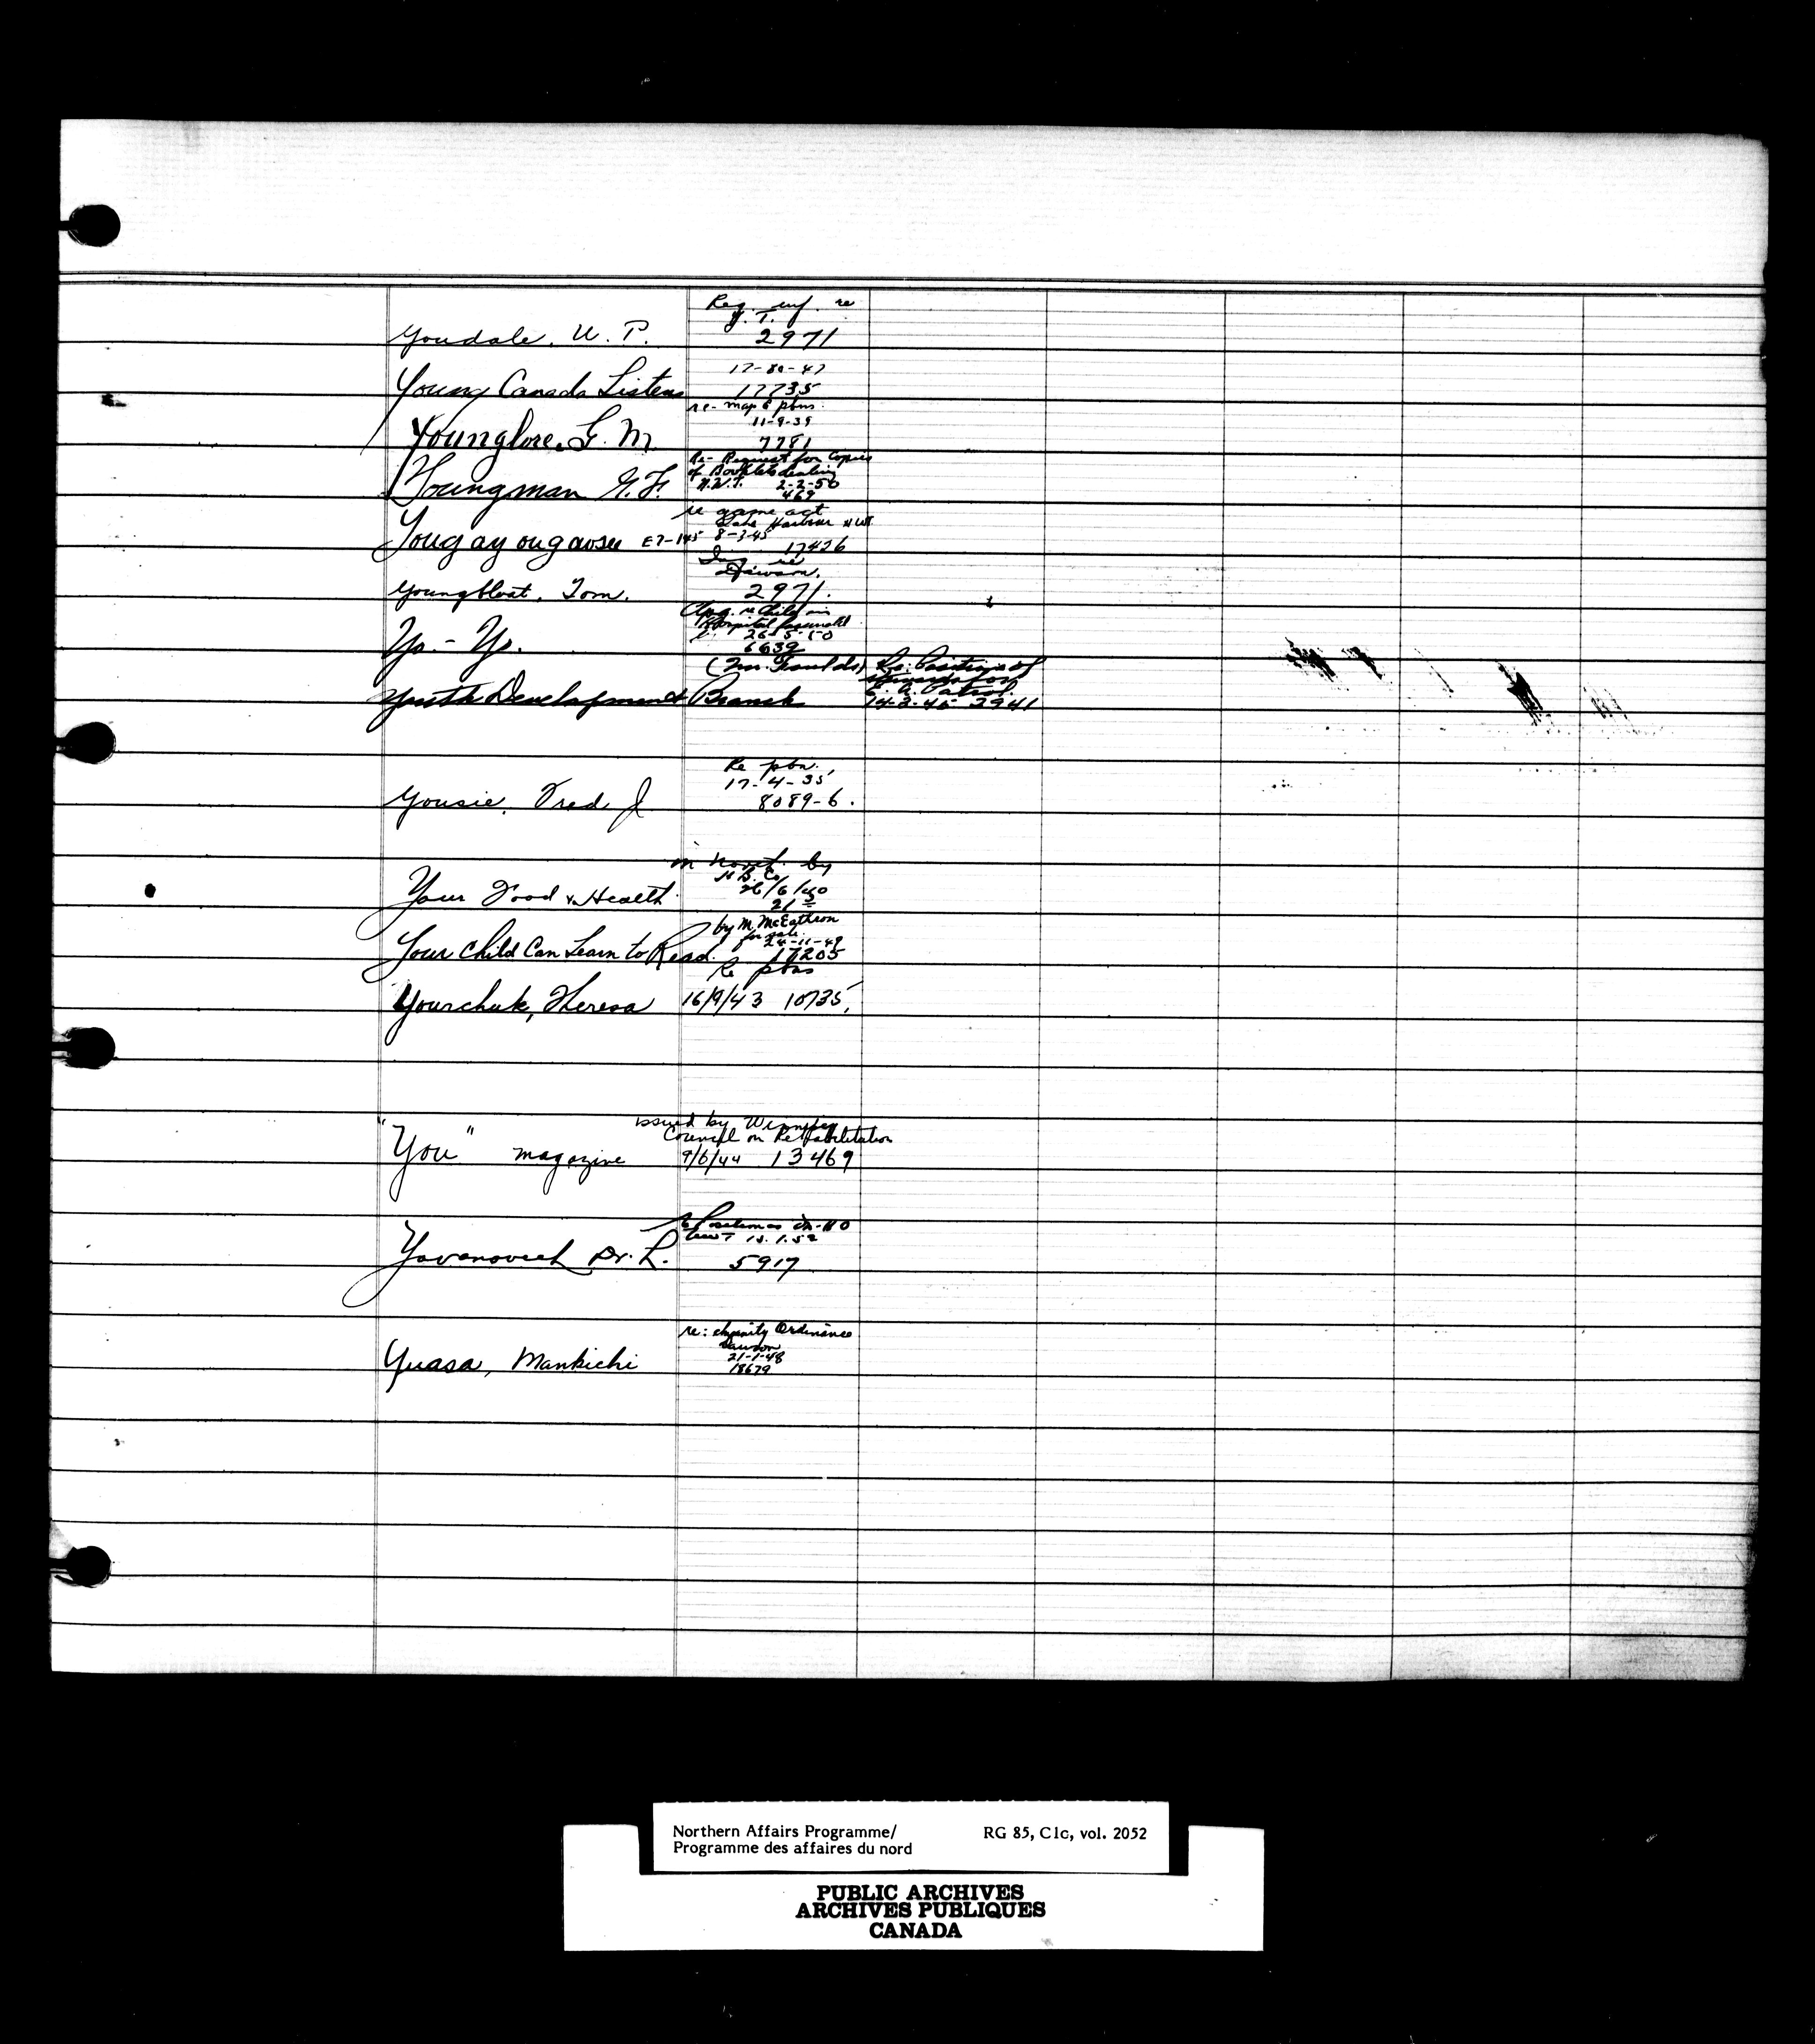 Req. inf. re
Y. T.
Youdale. W. P. 2971
17-10-47
Young Canada Listens 17735
re- map & pbns.
11-9-39
Younglore, G. M. 7781
Re- Request for Copies
of Booklets dealing
N.W.T. 2-2-50
Youngman G. F. 469
re game act
Lake Harbour NWT
Yougayougavsu E7-145 8-3-45
17426
Inq re
Dawson.
Youngbloat. Tom. 2971.
re Child in
Hospital
26-5-50
Yo-Yo. 6639
Re: Positions of
Youth Development Branch E. A. Patrol.
14-2-45 2941
Re pbn.
17-4-35
Yousie, Fred J 8089-6.
in North by
H B. Co
26/6/40
Your Food & Health. 21
by M. McEathron
for sale.
24-11-49
Your Child Can Learn to Read. 17205
Re pbns
Yourchuk, Theresa 16/9/43 10735,
issued by Winnipeg
Council on Rehabilitation
"You" magazine 9/6/44 13469
Yovanovich Dr. L. 5917
re: Ordinance
Dawson
21-1-48
Yuasa, Mankichi 18679
Northern Affairs Programme/ RG 85, C1c, vol. 2052
Programme des affaires du nord
PUBLIC ARCHIVES
ARCHIVES PUBLIQUES
CANADA